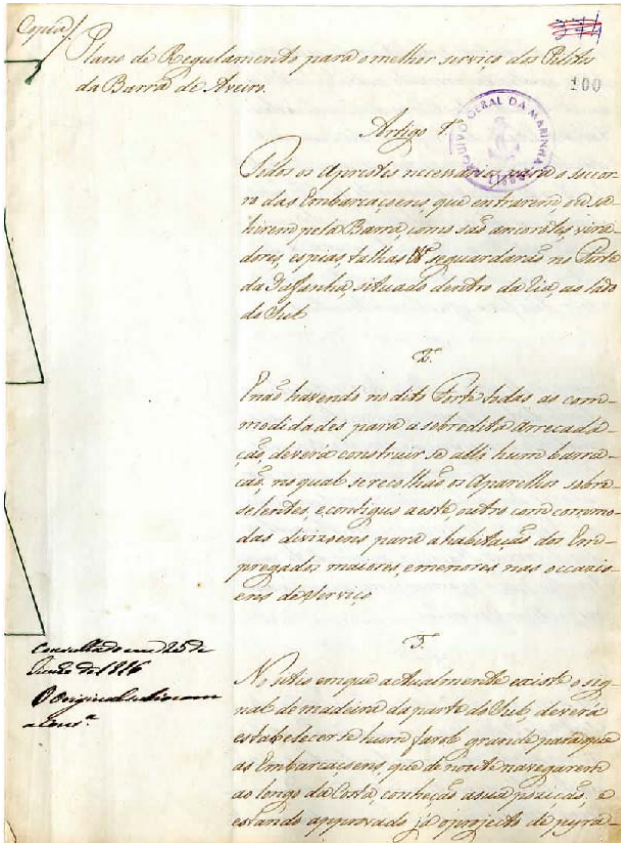 Copia/
374
Plano de Regulamento para o melhor serviço dos Pilotos
da Barra de Aveiro.
100
ARQUIVO GERAL DA MARINHA
LISBOA
Artigo 1º
Todos os Aprestes necessarios para o socor-
ro das Embarcaçoens que entrarem, ou sa-
hirem pela Barra, como são ancorotes, vira-
dores, espias, talhas &ª se guardarão no Forte
da Gaffanha, situado dentro da Ria, ao lado
do Sul.
2º
E não havendo no dito Forte todas as com-
modidades para a sobredita arrecada-
ção, deverá construir se alli hum barra-
cão, no qual se recolhão os Aparelhos sobre-
selentes, e contiguo a este, outro com commo-
das divizoens para a habitação dos Em-
pregados maiores, e menores nas occazio-
ens de Serviço
3º
No sitio em que actualmente existe o sig-
nal de madeira da parte do Sul, deverá
estabelecer-se hum farol grande para que
as Embarcaçoens, que de noute navegarem
ao longo da Costa, conheção a sua pozição, e
estando approvado já o projecto de pyra-
Consultado em 25 de
Junho de 1816
O Original